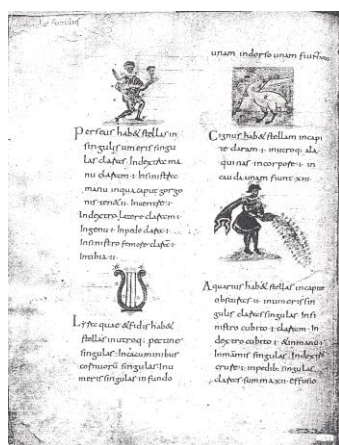 Perseus hab& stellas in
singulis umeris singu
las claras. In dextra ma
nu claram ·I· In sinistra
manu in qua caput gorgo
nis ten& ·II· In uentre ·I·
In dextro latere claram ·I·
In genu ·I· In pede claram ·I·
In sinistro femore clara ·I·
In tibia ·II·
Lyra quae & fidis hab&
stellas in utroq; pectine
singulas. In cacuminibus
cornuorū singulas. In u
meris singulas in fundo
unam in dorso unam fiunt
Cignus hab& stellam in capi
te claram ·I· in utroq; ala
quinas · in corpore ·I· in
cauda unam fiunt XIII.
Aquarius hab& stellas in capite
obscuras ·II· in umeris sin
gulis claras singulas In si
nistro cubito ·I· claram · In
dextro cubito ·I· & in manu ·I·
In mamis singulas. In dextro
crure ·I· in pedib; singulas
claras summa XII effusio